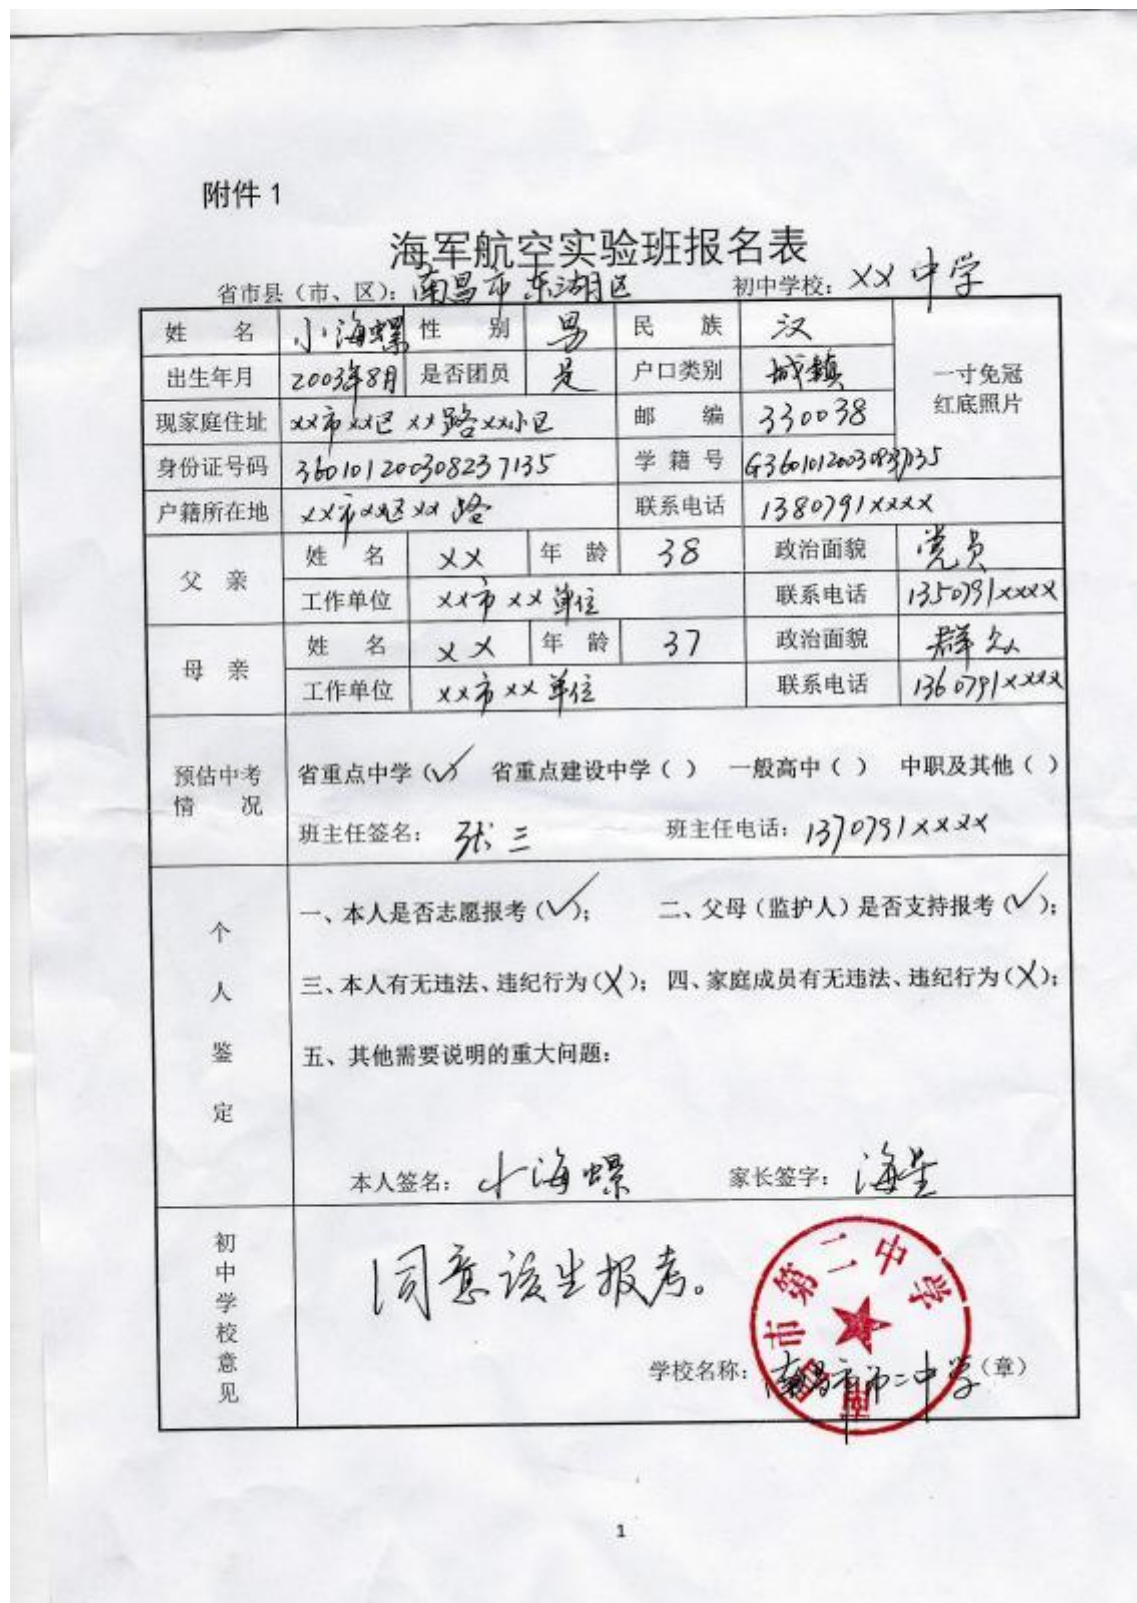 附件 1
海军航空实验班报名表
省市县（市、区）：南昌市东湖区 初中学校：XX 中学
姓 名 小海螺 性 别 男 民 族 汉 一寸免冠红底照片
出生年月 2003年8月 是否团员 是 户口类别 城镇
现家庭住址 xx市xx区xx路xx小区 邮 编 330038
身份证号码 360101200308237135 学 籍 号
户籍所在地 xx市xx区xx路 联系电话 1380791xxxx
父 亲 姓 名 xx 年 龄 38 政治面貌 党员
工作单位 xx市xx单位 联系电话 1350791xxxx
母 亲 姓 名 xx 年 龄 37 政治面貌 群众
工作单位 xx市xx单位 联系电话 1360791xxxx
预估中考情 况 省重点中学（✓） 省重点建设中学（ ） 一般高中（ ） 中职及其他（ ）
班主任签名：张三 班主任电话：1370791xxxx
个人鉴定 一、本人是否志愿报考（✓）； 二、父母（监护人）是否支持报考（✓）；
三、本人有无违法、违纪行为（X）；四、家庭成员有无违法、违纪行为（X）；
五、其他需要说明的重大问题：
本人签名：小海螺 家长签字：海星
初中学校意见 同意该生报考。
南昌市第二中学
学校名称：南昌市第二中学（章）
1